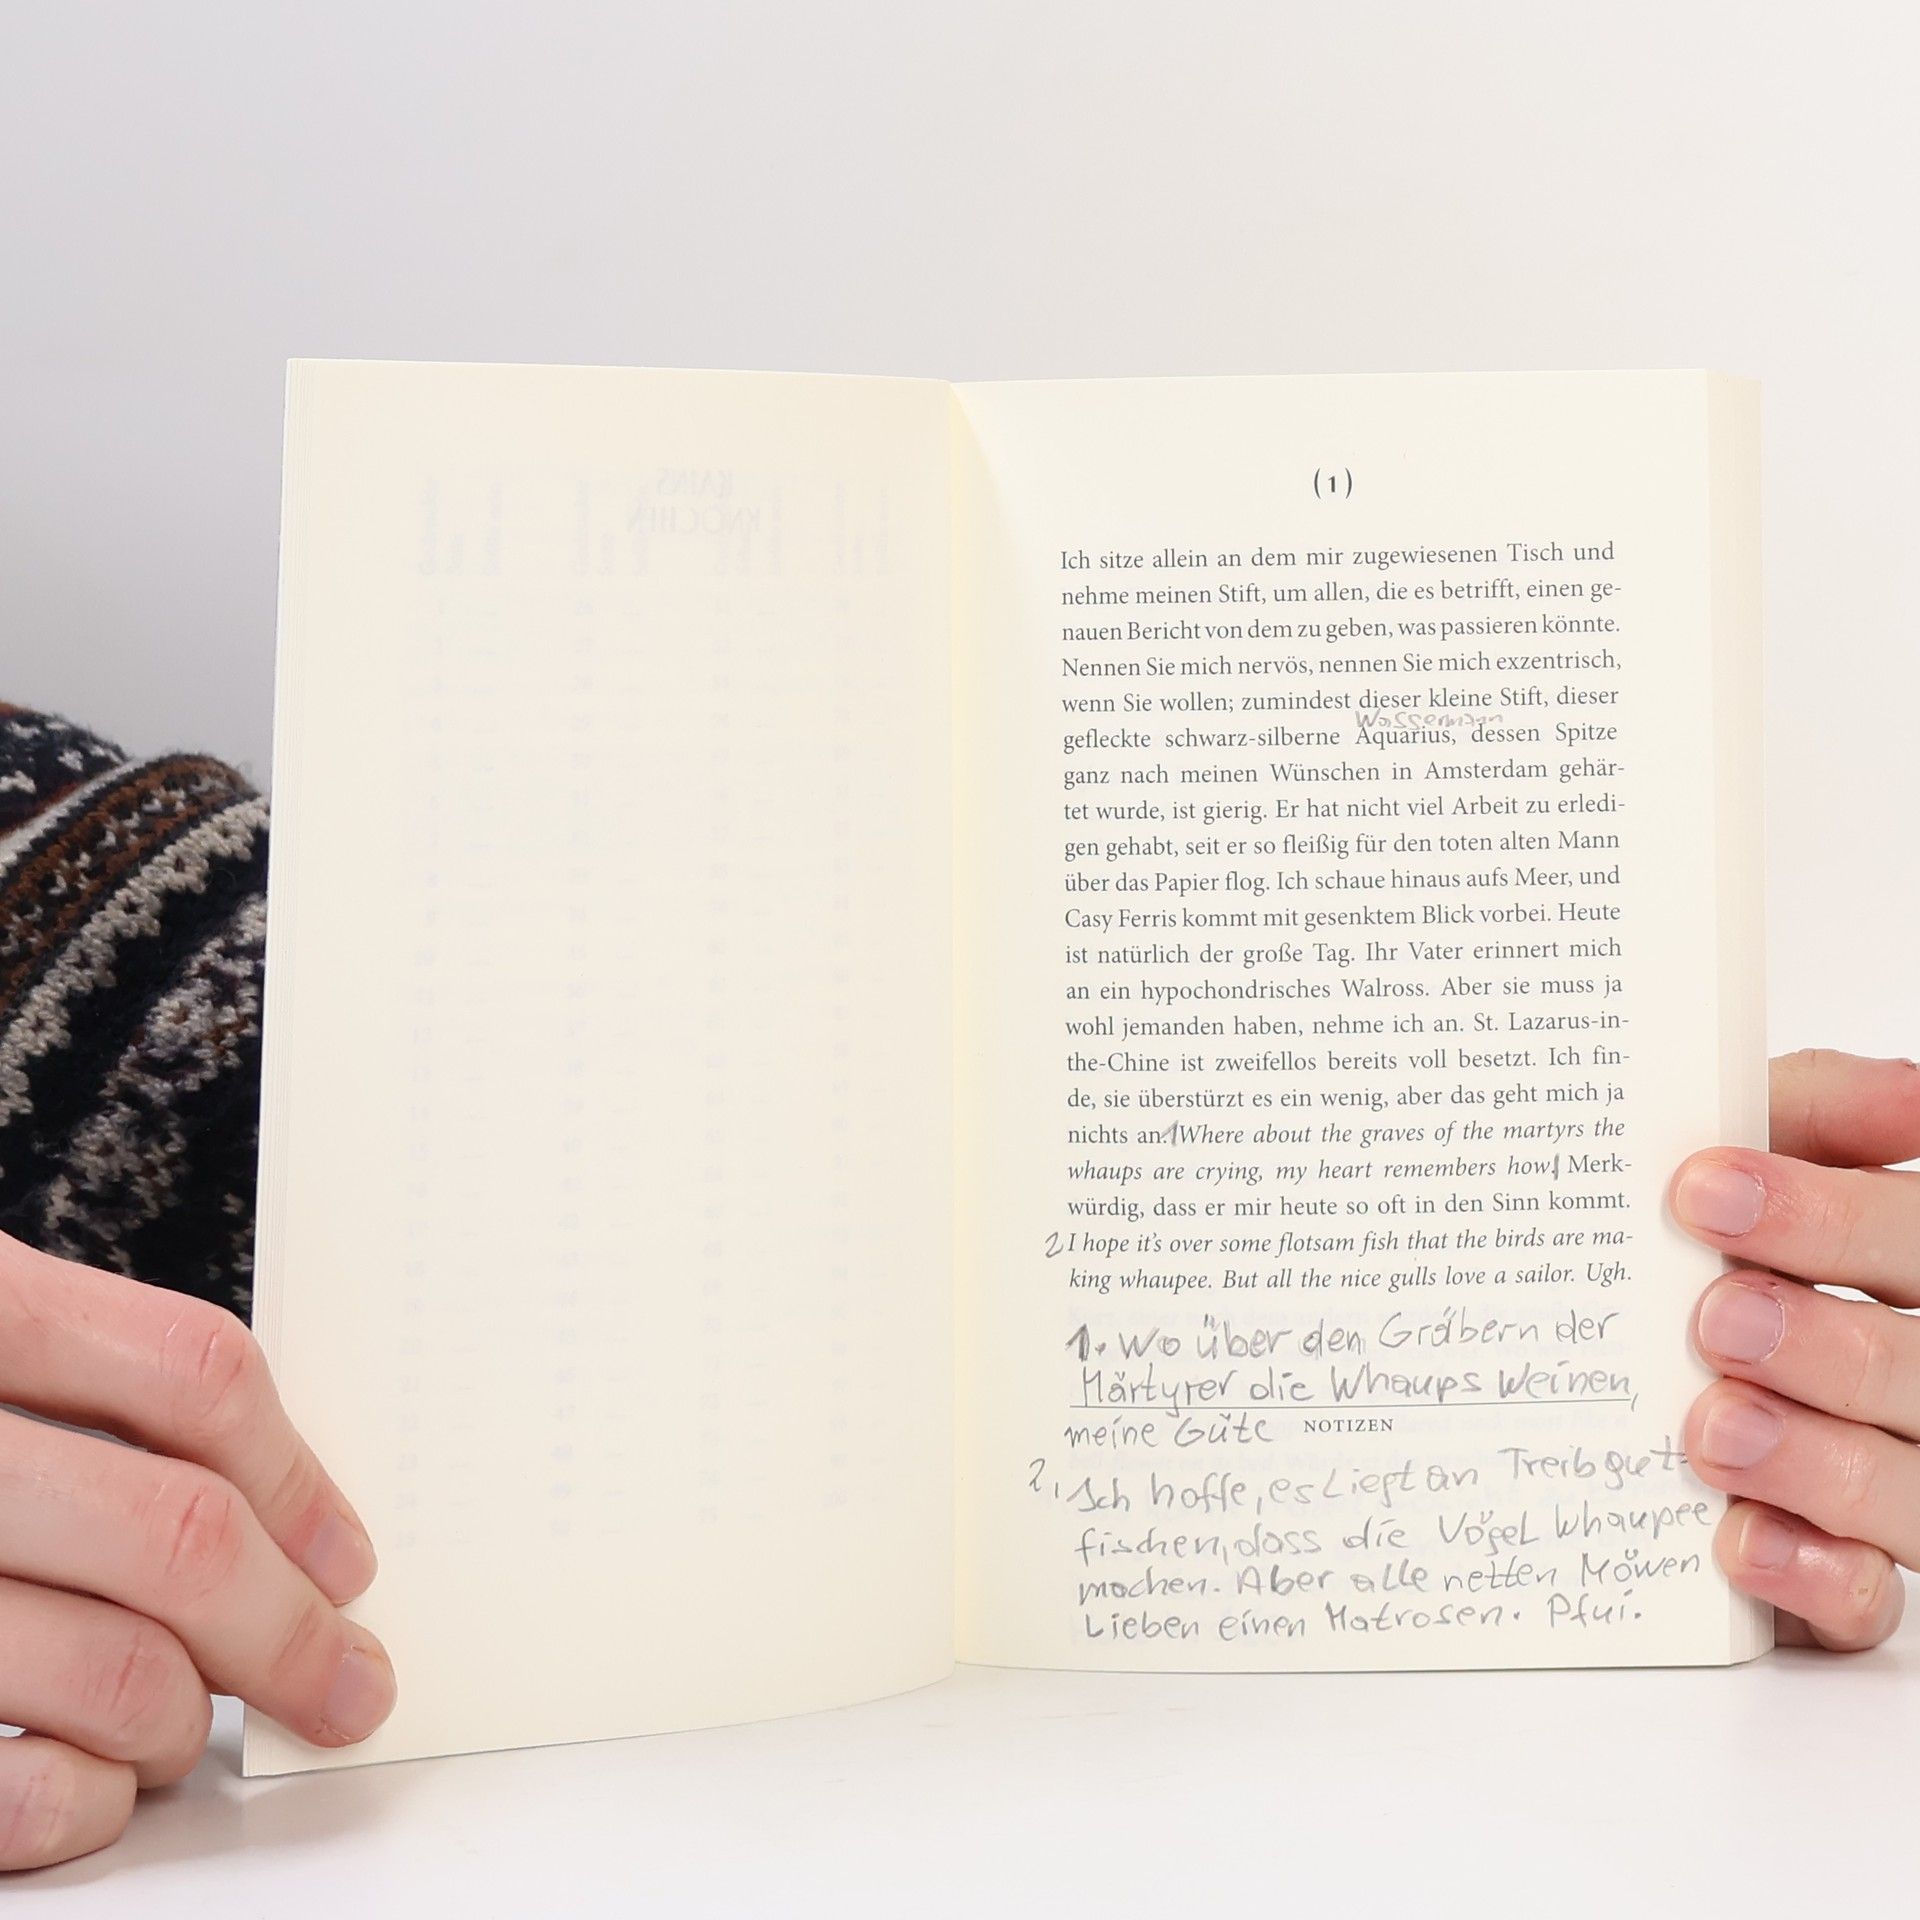 KAINS
KNOCHEN
(1)
Ich sitze allein an dem mir zugewiesenen Tisch und
nehme meinen Stift, um allen, die es betrifft, einen ge-
nauen Bericht von dem zu geben, was passieren könnte.
Nennen Sie mich nervös, nennen Sie mich exzentrisch,
wenn Sie wollen; zumindest dieser kleine Stift, dieser
Wassermann
gefleckte schwarz-silberne Aquarius, dessen Spitze
ganz nach meinen Wünschen in Amsterdam gehär-
tet wurde, ist gierig. Er hat nicht viel Arbeit zu erledi-
gen gehabt, seit er so fleißig für den toten alten Mann
über das Papier flog. Ich schaue hinaus aufs Meer, und
Casy Ferris kommt mit gesenktem Blick vorbei. Heute
ist natürlich der große Tag. Ihr Vater erinnert mich
an ein hypochondrisches Walross. Aber sie muss ja
wohl jemanden haben, nehme ich an. St. Lazarus-in-
the-Chine ist zweifellos bereits voll besetzt. Ich fin-
de, sie überstürzt es ein wenig, aber das geht mich ja
nichts an. 1 Where about the graves of the martyrs the
whaups are crying, my heart remembers how. Merk-
würdig, dass er mir heute so oft in den Sinn kommt.
2 I hope it's over some flotsam fish that the birds are ma-
king whaupee. But all the nice gulls love a sailor. Ugh.
1. Wo über den Gräbern der
Märtyrer die Whaups weinen,
meine Güte NOTIZEN
2. Ich hoffe, es liegt an Treibgut-
fischen, dass die Vögel whaupee
machen. Aber alle netten Möwen
Lieben einen Matrosen. Pfui.